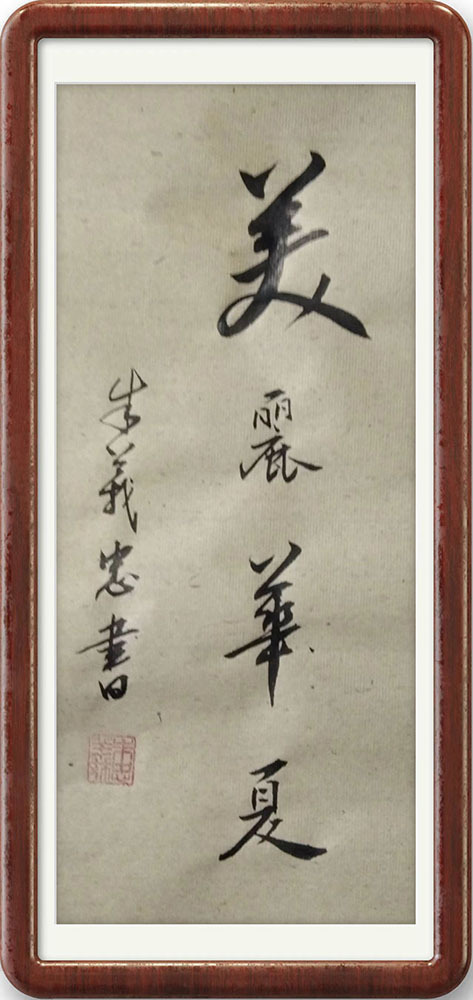 美麗華夏
朱義忠書